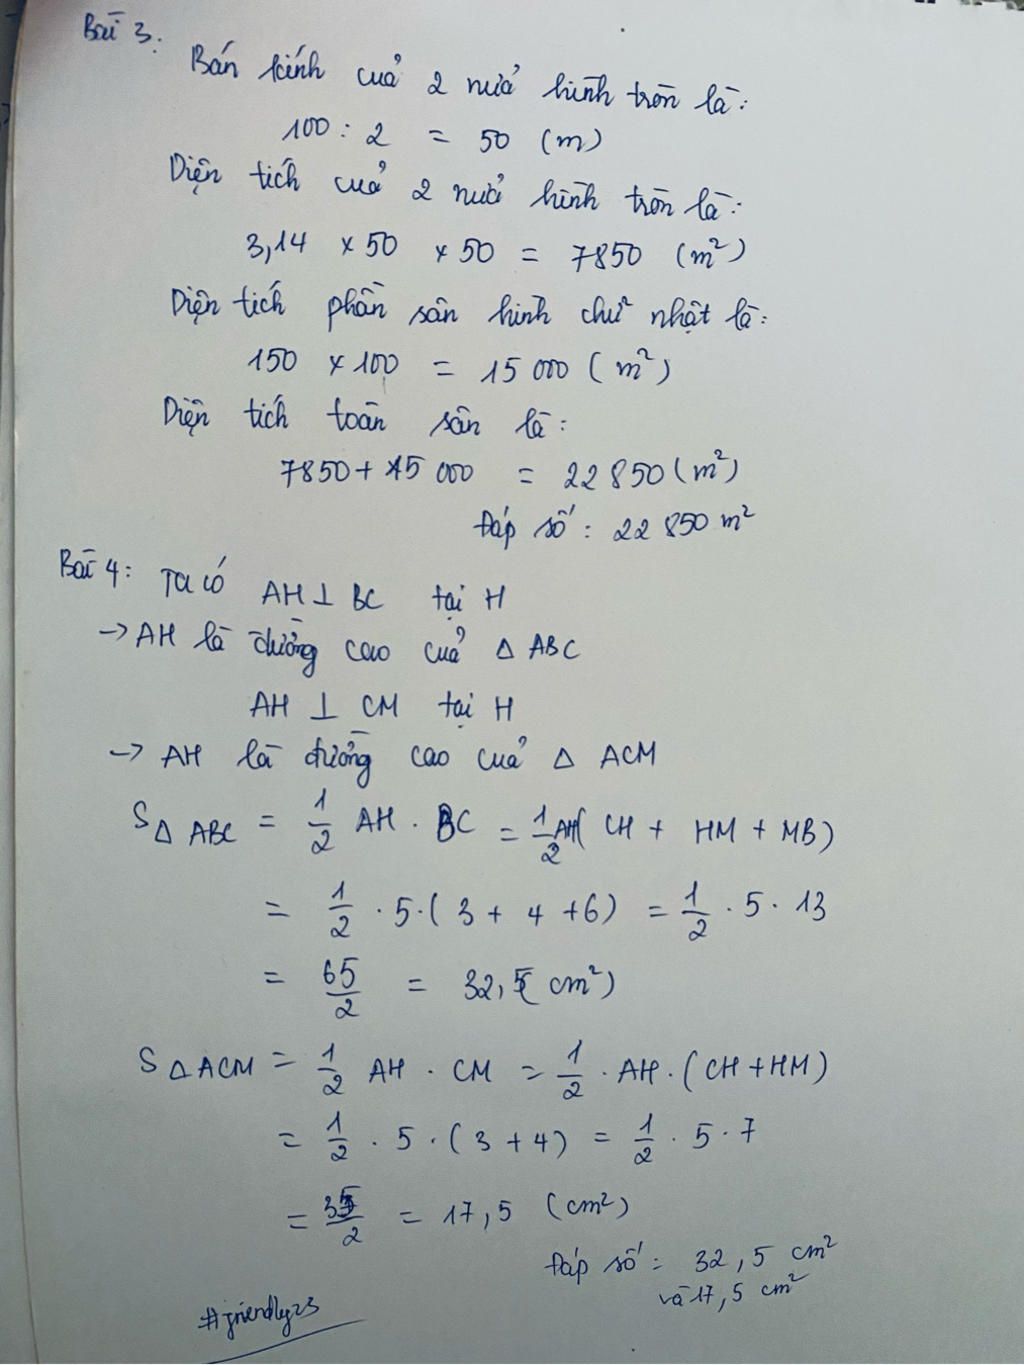 Bài 3:
Bán kính của 2 nửa hình tròn là:
100 : 2 = 50 (m)
Diện tích của 2 nửa hình tròn là:
3,14 x 50 x 50 = 7850 (m²)
Diện tích phần sân hình chữ nhật là:
150 x 100 = 15 000 (m²)
Diện tích toàn sân là:
7850 + 15 000 = 22 850 (m²)
Đáp số: 22 850 m²
Bài 4: Ta có AH ⊥ BC tại H
→ AH là đường cao của Δ ABC
AH ⊥ CM tại H
→ AH là đường cao của Δ ACM
S Δ ABC = 1/2 AH . BC = 1/2 AH( CH + HM + MB)
= 1/2 . 5 . ( 3 + 4 + 6) = 1/2 . 5 . 13
= 65/2 = 32,5 ( cm²)
S Δ ACM = 1/2 AH . CM = 1/2 . AH . (CH + HM)
= 1/2 . 5 . ( 3 + 4) = 1/2 . 5 . 7
= 35/2 = 17,5 (cm²)
Đáp số: 32,5 cm²
và 17,5 cm²
#friendly23